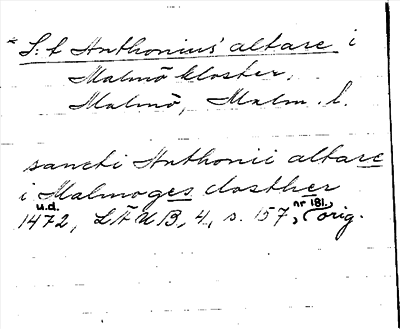 * S:t Anthonius' altare i
Malmö kloster,
Malmö, Malm. l.
sancti Anthonii altare
i Malmoges closther
u.d. nr 181.,
1472, LÄUB, 4, s. 157, orig.